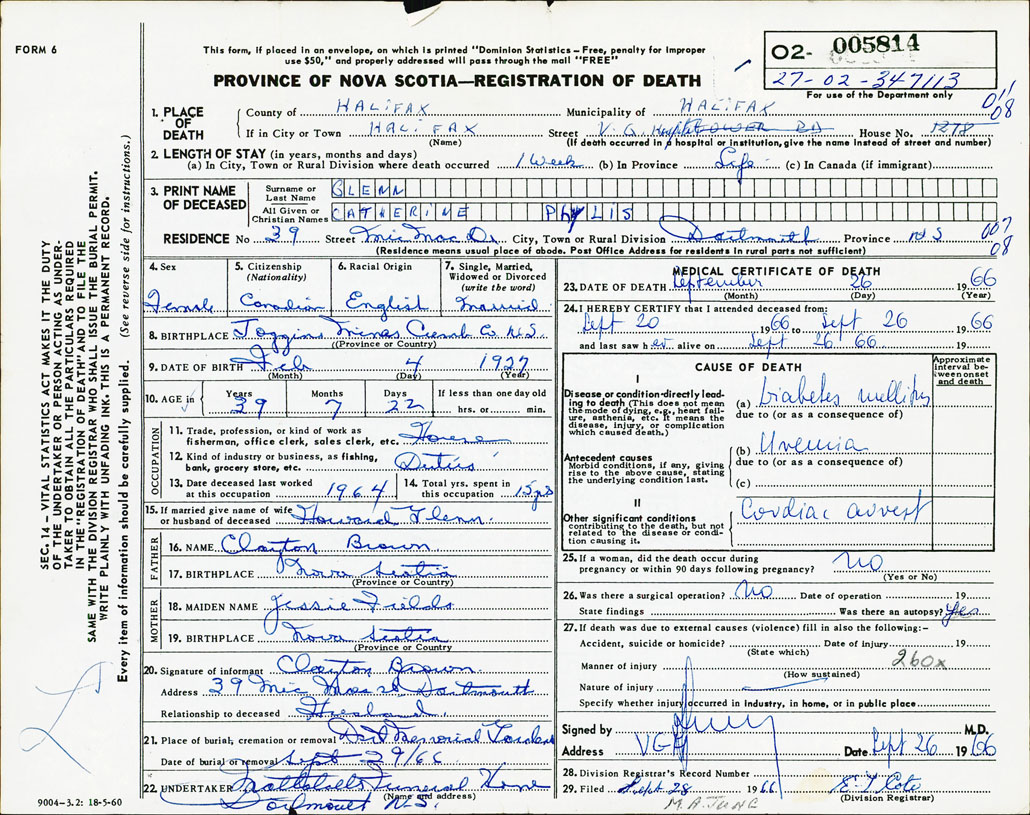 FORM 6
This form, if placed in an envelope, on which is printed "Dominion Statistics – Free, penalty for improper
use $50," and properly addressed will pass through the mail "FREE"
PROVINCE OF NOVA SCOTIA—REGISTRATION OF DEATH
02- 005814
27-02-347113
For use of the Department only
011
08
1. PLACE OF DEATH
County of HALIFAX Municipality of HALIFAX
If in City or Town HALIFAX Street V. G. Hospital TOWER RD House No. 1278
(Name) (If death occurred in a hospital or institution, give the name instead of street and number)
2. LENGTH OF STAY (in years, months and days)
(a) In City, Town or Rural Division where death occurred 1 Week (b) In Province Life (c) In Canada (if immigrant)
3. PRINT NAME OF DECEASED
Surname or Last Name GLENN
All Given or Christian Names CATHERINE PHYLIS
RESIDENCE No 39 Street Mic Mac Dr. City, Town or Rural Division Dartmouth Province N S
007
08
(Residence means usual place of abode. Post Office Address for residents in rural parts not sufficient)
4. Sex Female
5. Citizenship (Nationality) Canadian
6. Racial Origin English
7. Single, Married, Widowed or Divorced (write the word) Married
8. BIRTHPLACE Joggins Mines Cumb Co N.S.
(Province or County)
9. DATE OF BIRTH Feb 4 1927
(Month) (Day) (Year)
10. AGE in Years 39 Months 7 Days 22 If less than one day old
hrs. or min.
OCCUPATION
11. Trade, profession, or kind of work as
fisherman, office clerk, sales clerk, etc. House
12. Kind of industry or business, as fishing,
bank, grocery store, etc. Duties
13. Date deceased last worked
at this occupation 1964
14. Total yrs. spent in
this occupation 15 yrs
15. If married give name of wife
or husband of deceased Howard Glenn
FATHER
16. NAME Clayton Brown
17. BIRTHPLACE Nova Scotia
(Province or Country)
MOTHER
18. MAIDEN NAME Jessie Fields
19. BIRTHPLACE Nova Scotia
(Province or Country)
20. Signature of informant Clayton Brown
Address 39 Mic Mac Dartmouth
Relationship to deceased Husband
21. Place of burial, cremation or removal Dart Memorial Gardens
Date of burial or removal Sept 29/66
22. UNDERTAKER Funeral Home
(Name and address)
Dartmouth N.S.
9004–3.2: 18-5-60
MEDICAL CERTIFICATE OF DEATH
23. DATE OF DEATH September 26 1966
(Month) (Day) (Year)
24. I HEREBY CERTIFY that I attended deceased from:
Sept 20 1966 to Sept 26 1966
and last saw her alive on Sept 26 66
CAUSE OF DEATH
Approximate interval between onset and death
I
Disease or condition directly leading to death (This does not mean the mode of dying, e.g., heart failure, asthenia, etc. It means the disease, injury, or complication which caused death.)
(a) Diabetes mellitus
due to (or as a consequence of)
(b) Uremia
due to (or as a consequence of)
(c)
Antecedent causes
Morbid conditions, if any, giving rise to the above cause, stating the underlying condition last.
II
Other significant conditions
contributing to the death, but not related to the disease or condition causing it.
Cardiac arrest
25. If a woman, did the death occur during
pregnancy or within 90 days following pregnancy? NO
(Yes or No)
26. Was there a surgical operation? NO Date of operation 19
State findings Was there an autopsy? Yes
27. If death was due to external causes (violence) fill in also the following:–
Accident, suicide or homicide? Date of injury 19
(State which)
260x
Manner of injury
(How sustained)
Nature of injury
Specify whether injury occurred in Industry, in home, or in public place
Signed by M.D.
Address VGH Date Sept 26 1966
28. Division Registrar's Record Number
29. Filed Sept. 28 1966
(Division Registrar)
M. A. JUNG
SEC. 14 – VITAL STATISTICS ACT MAKES IT THE DUTY
OF THE UNDERTAKER OR PERSON ACTING AS UNDER-
TAKER TO OBTAIN ALL THE PARTICULARS REQUIRED
IN THE "REGISTRATION OF DEATH" AND TO FILE THE
SAME WITH THE DIVISION REGISTRAR WHO SHALL ISSUE THE BURIAL PERMIT.
WRITE PLAINLY WITH UNFADING INK. THIS IS A PERMANENT RECORD.
Every item of information should be carefully supplied. (See reverse side for instructions.)